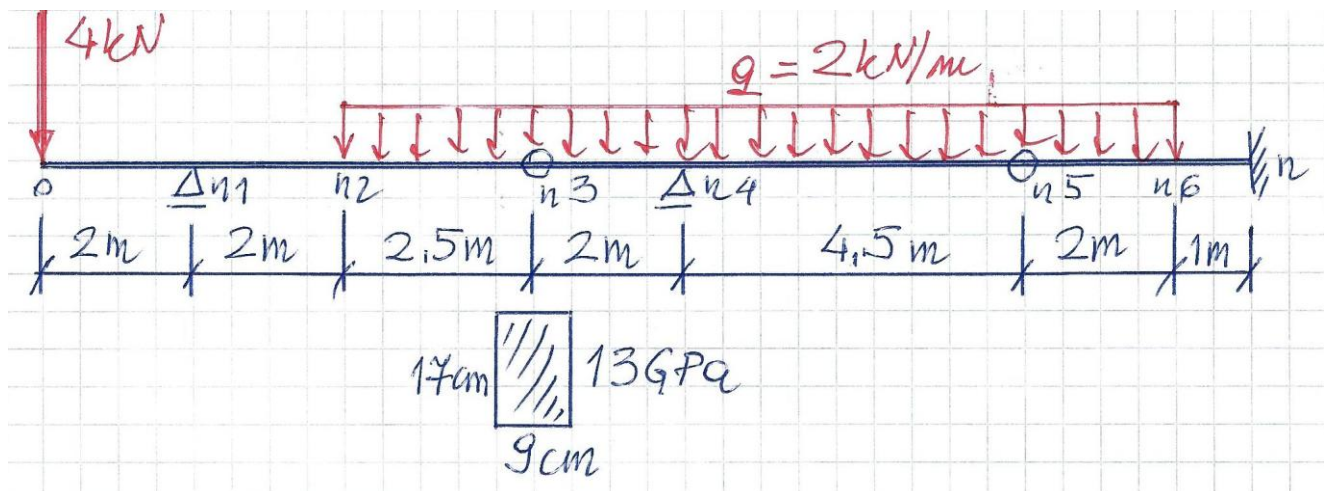 4kN
q = 2kN/m
0 n1 n2 n3 n4 n5 n6 n
2m 2m 2,5m 2m 4,5m 2m 1m
17cm 13GPa
9cm